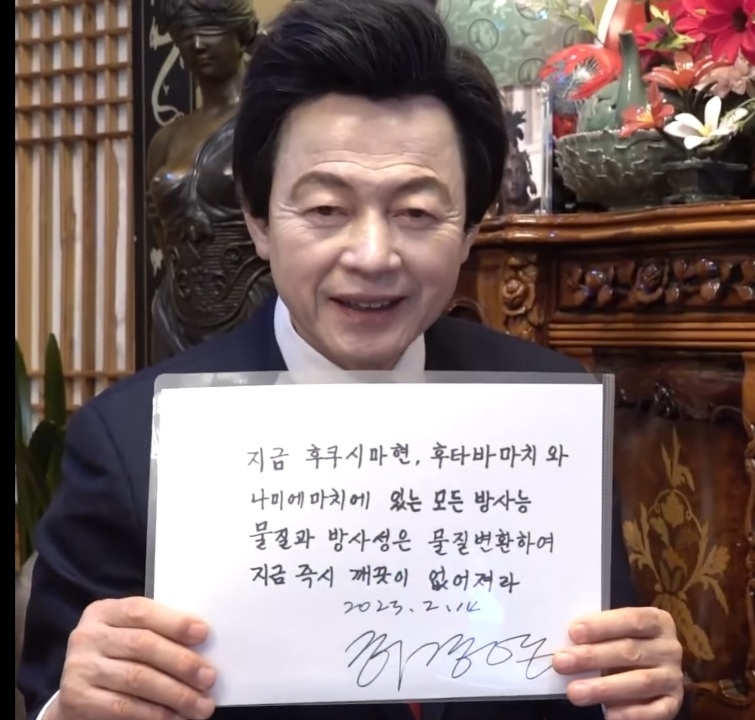 지금 후쿠시마현, 후타바마치와
나미에마치에 있는 모든 방사능
물질과 방사성은 물질변환하여
지금 즉시 깨끗이 없어져라
2023.2.14
허경영